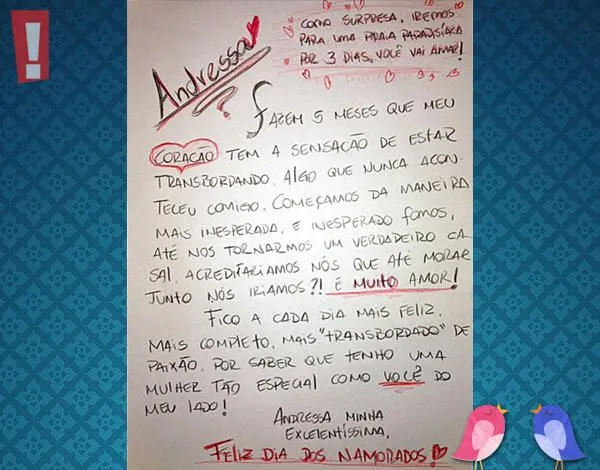 Andressa
COMO SURPRESA, IREMOS
PARA UMA PRAIA PARADISÍACA
POR 3 DIAS, VOCÊ VAI AMAR!
FAZEM 5 MESES QUE MEU
CORAÇÃO TEM A SENSAÇÃO DE ESTAR
TRANSBORDANDO. ALGO QUE NUNCA ACON-
TECEU COMIGO. COMEÇAMOS DA MANEIRA
MAIS INESPERADA, E INESPERADO FOMOS,
ATÉ NOS TORNARMOS UM VERDADEIRO CA
SAL. ACREDITARIAMOS NÓS QUE ATÉ MORAR
JUNTO NÓS IRIAMOS?! É MUITO AMOR!
FICO A CADA DIA MAIS FELIZ.
MAIS COMPLETO, MAIS "TRANSBORDADO" DE
PAIXÃO. POR SABER QUE TENHO UMA
MULHER TÃO ESPECIAL COMO VOCÊ DO
MEU LADO!
ANDRESSA MINHA
EXCELENTÍSSIMA,
FELIZ DIA DOS NAMORADOS!